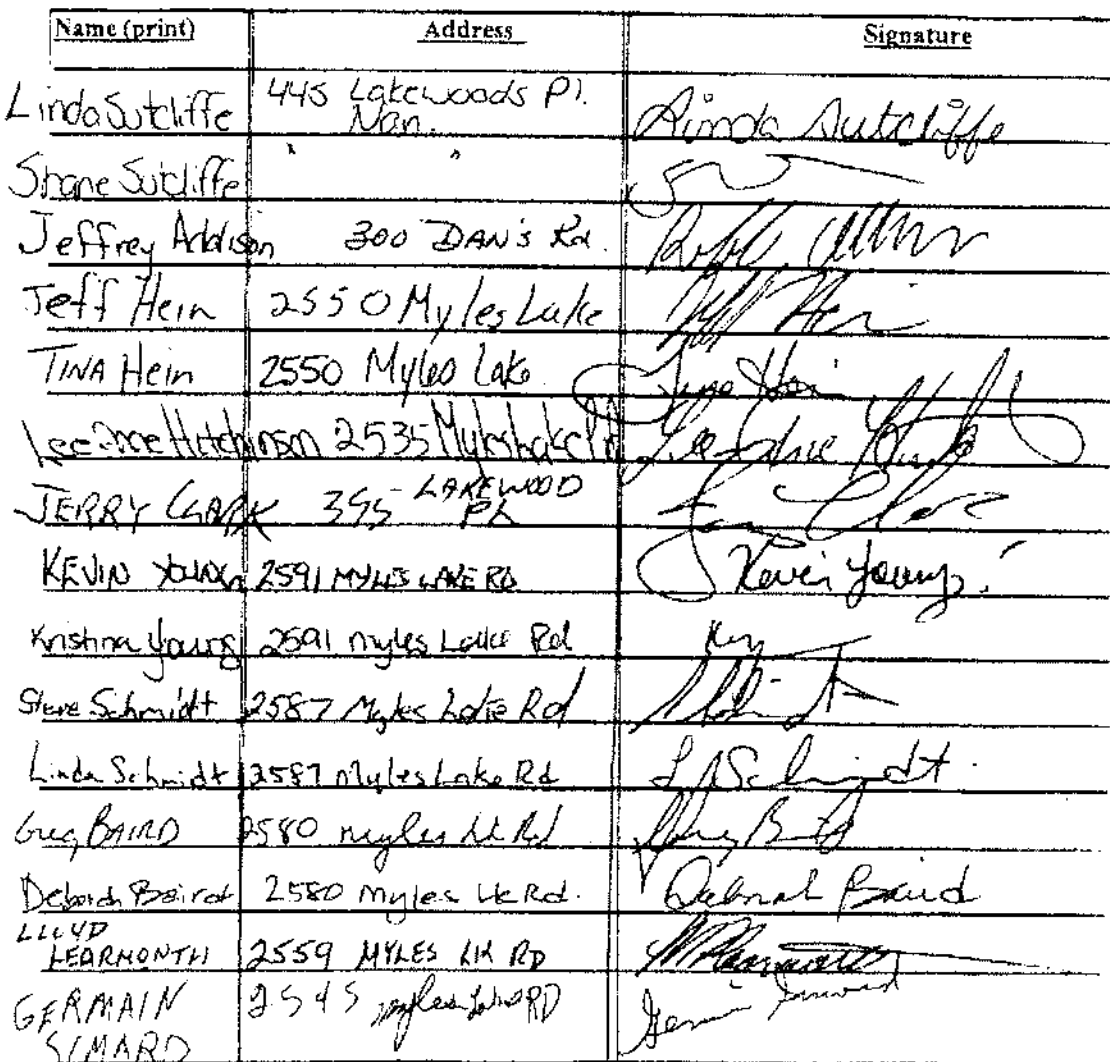 Name (print) Address Signature
Linda Sutcliffe 445 Lakewoods Pl. Nan. Linda Sutcliffe
Shane Sutcliffe " "
Jeffrey Addison 300 DAN'S Rd.
Jeff Hein 2550 Myles Lake Jeff Hein
TINA Hein 2550 Myles Lake Tina Hein
Hutchinson 2535 Myles Lake Rd
JERRY CLARK 395 LAKEWOOD PL
KEVIN YOUNG 2591 MYLES LAKE RD Kevin Young
Kristina Young 2591 myles Lake Rd
Steve Schmidt 2587 Myles Lake Rd
Linda Schmidt 2587 Myles Lake Rd L Schmidt
Greg BAIRD 2580 myles Lk Rd Greg Baird
Deborah Baird 2580 Myles Lk Rd. Deborah Baird
LLOYD LEARMONTH 2559 MYLES LK RD
GERMAIN SIMARD 2545 myles Lake RD Germain Simard